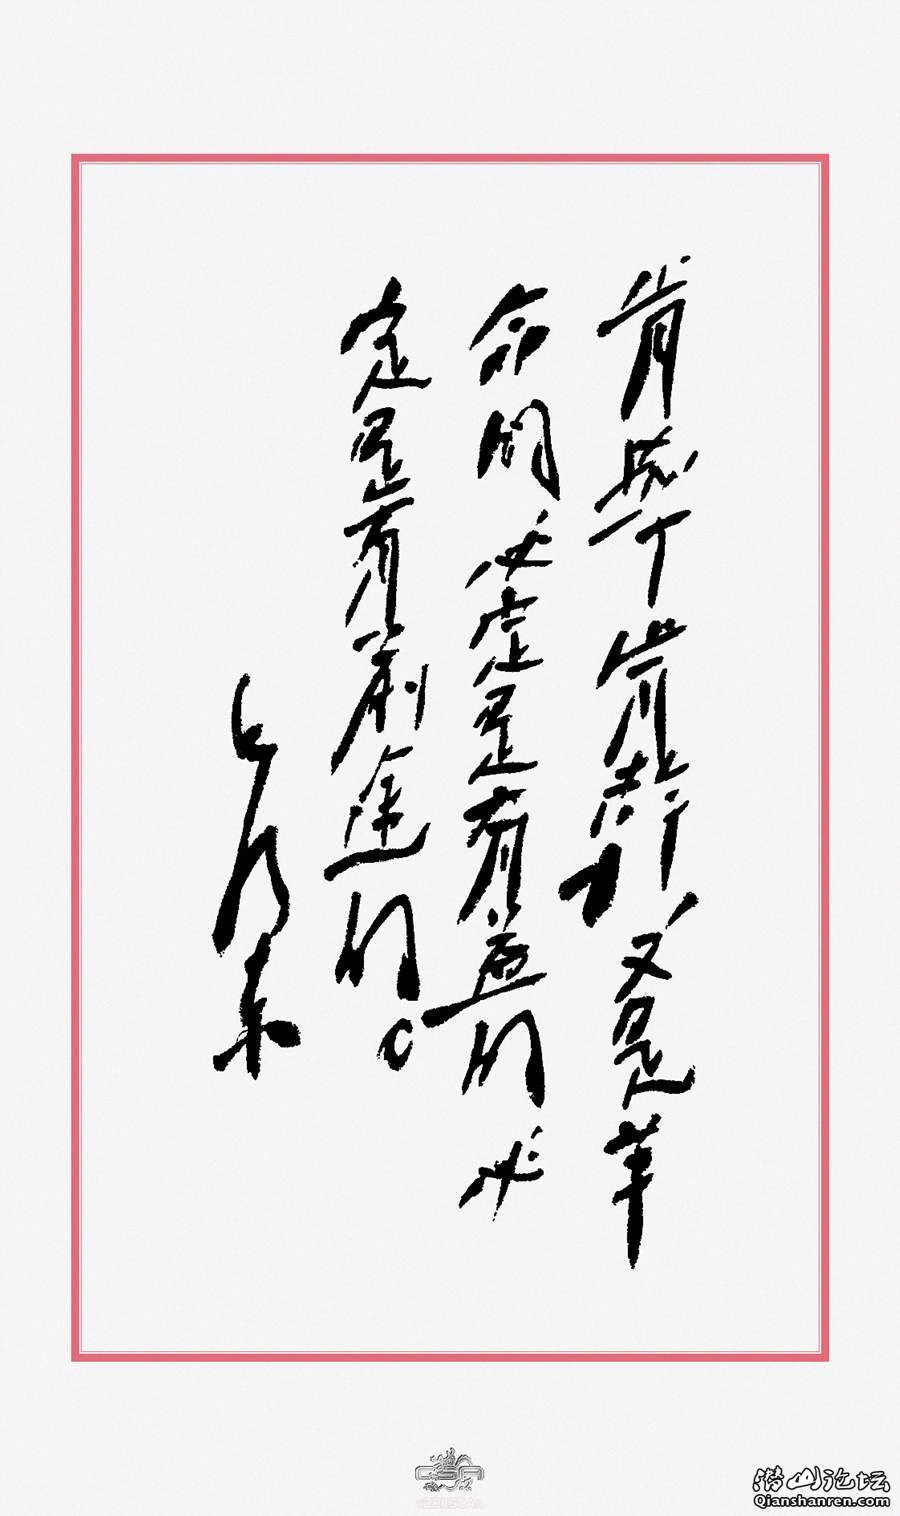 肯学肯干，又是革
命的，必定是有益的，必
定是有前途的。
毛泽东
潜山论坛
Qianshanren.com
CSA